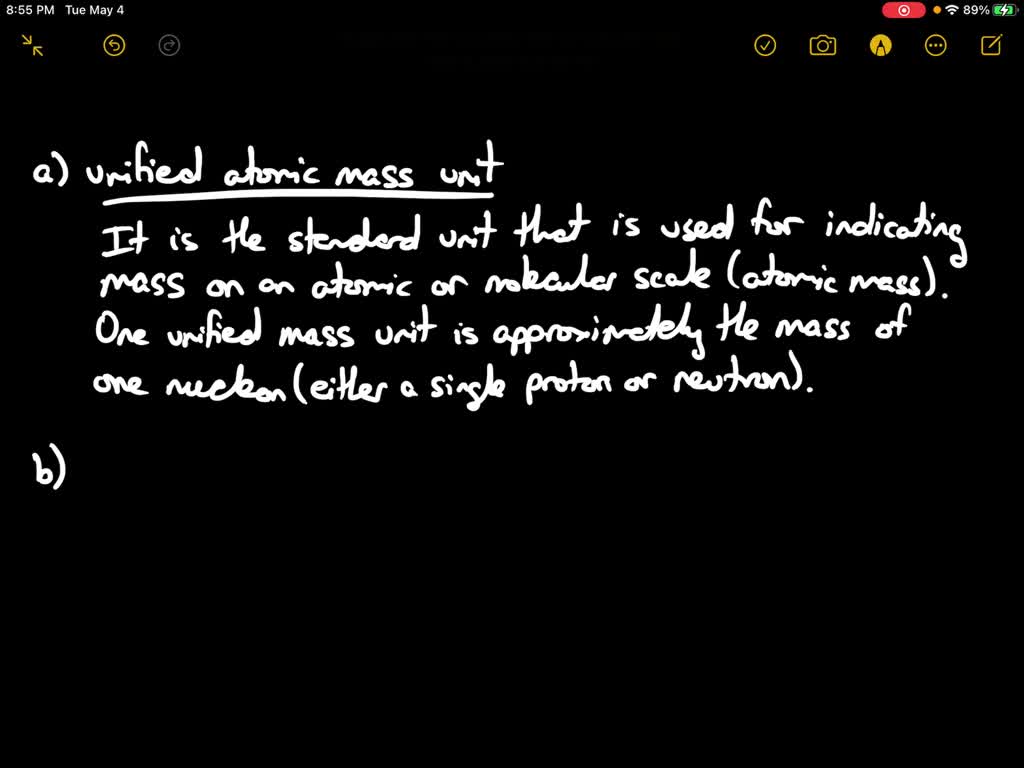 8:55 PM Tue May 4
89%
a) unified atomic mass unit
It is the standard unit that is used for indicating
mass on an atomic or molecular scale (atomic mass).
One unified mass unit is approximately the mass of
one nucleon (either a single proton or neutron).
b)